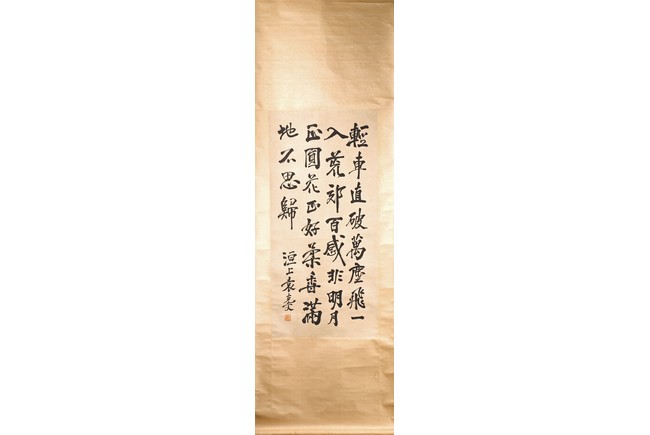 輕車直破萬塵飛一
入荒郊百感非明月
正圓花正好葉香滿
地不思歸
洹上袁